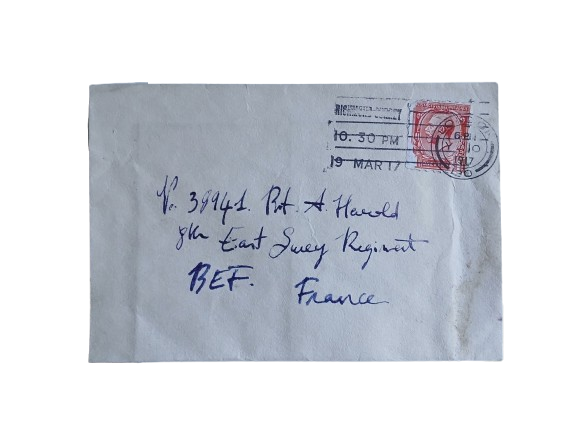 RICHMOND SURREY
10. 30 PM
19 MAR 17
1917
No. 38941. Pvt. A. Harold
8th East Surrey Regiment
BEF. France